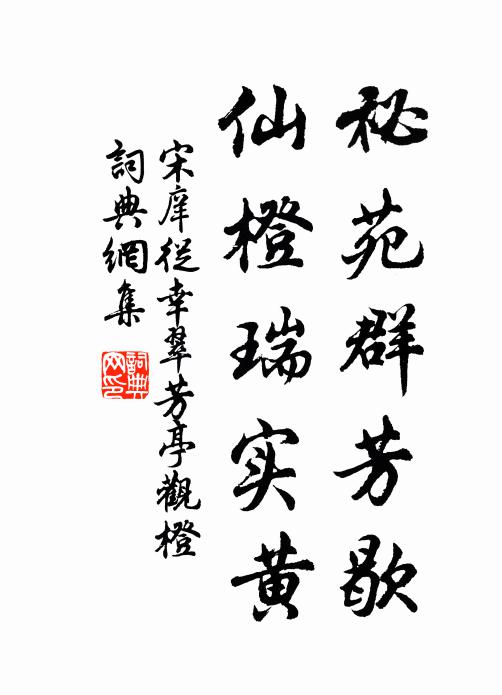 秘苑群芳歇
仙橙瑞实黄
宋庠從幸翠芳亭觀橙
詞典網集
詞典网印